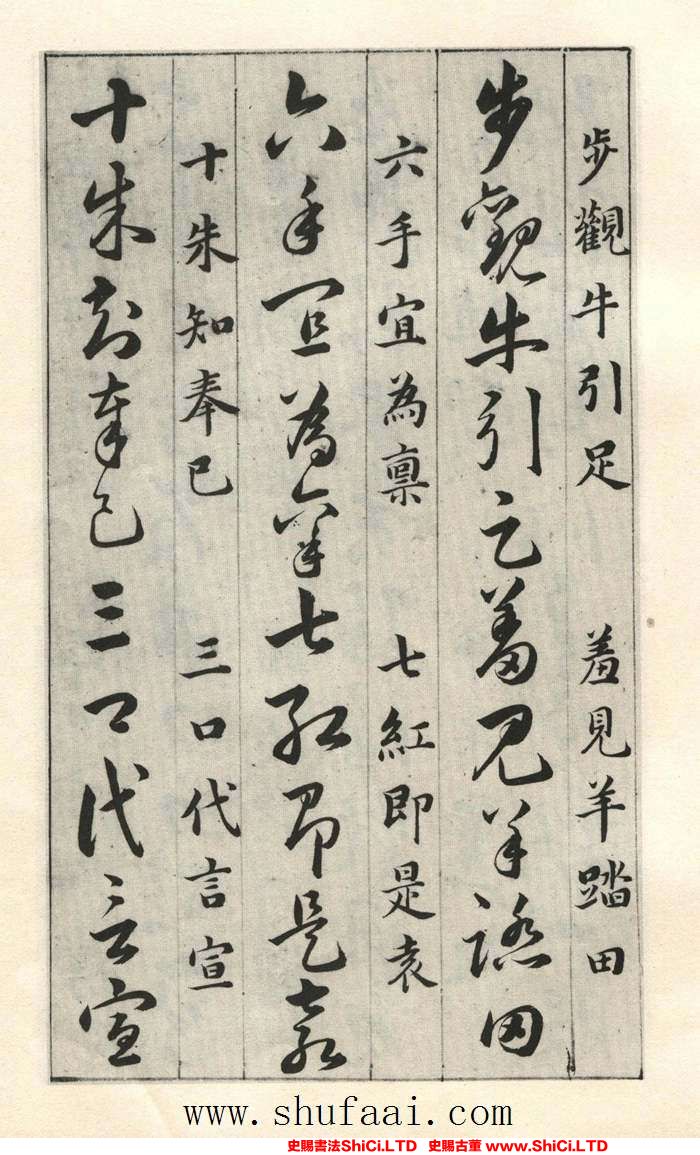 步觀牛引足 羞見羊踏田
步觀牛引足羞見羊踏田
六手宜為稟 七紅即是袁
六手宜為稟七紅即是袁
十朱知奉已 三口代言宣
十朱知奉已三口代言宣
www.shufaai.com
史賜書法ShiCi.LTD 史賜古董 www.ShiCi.LTD